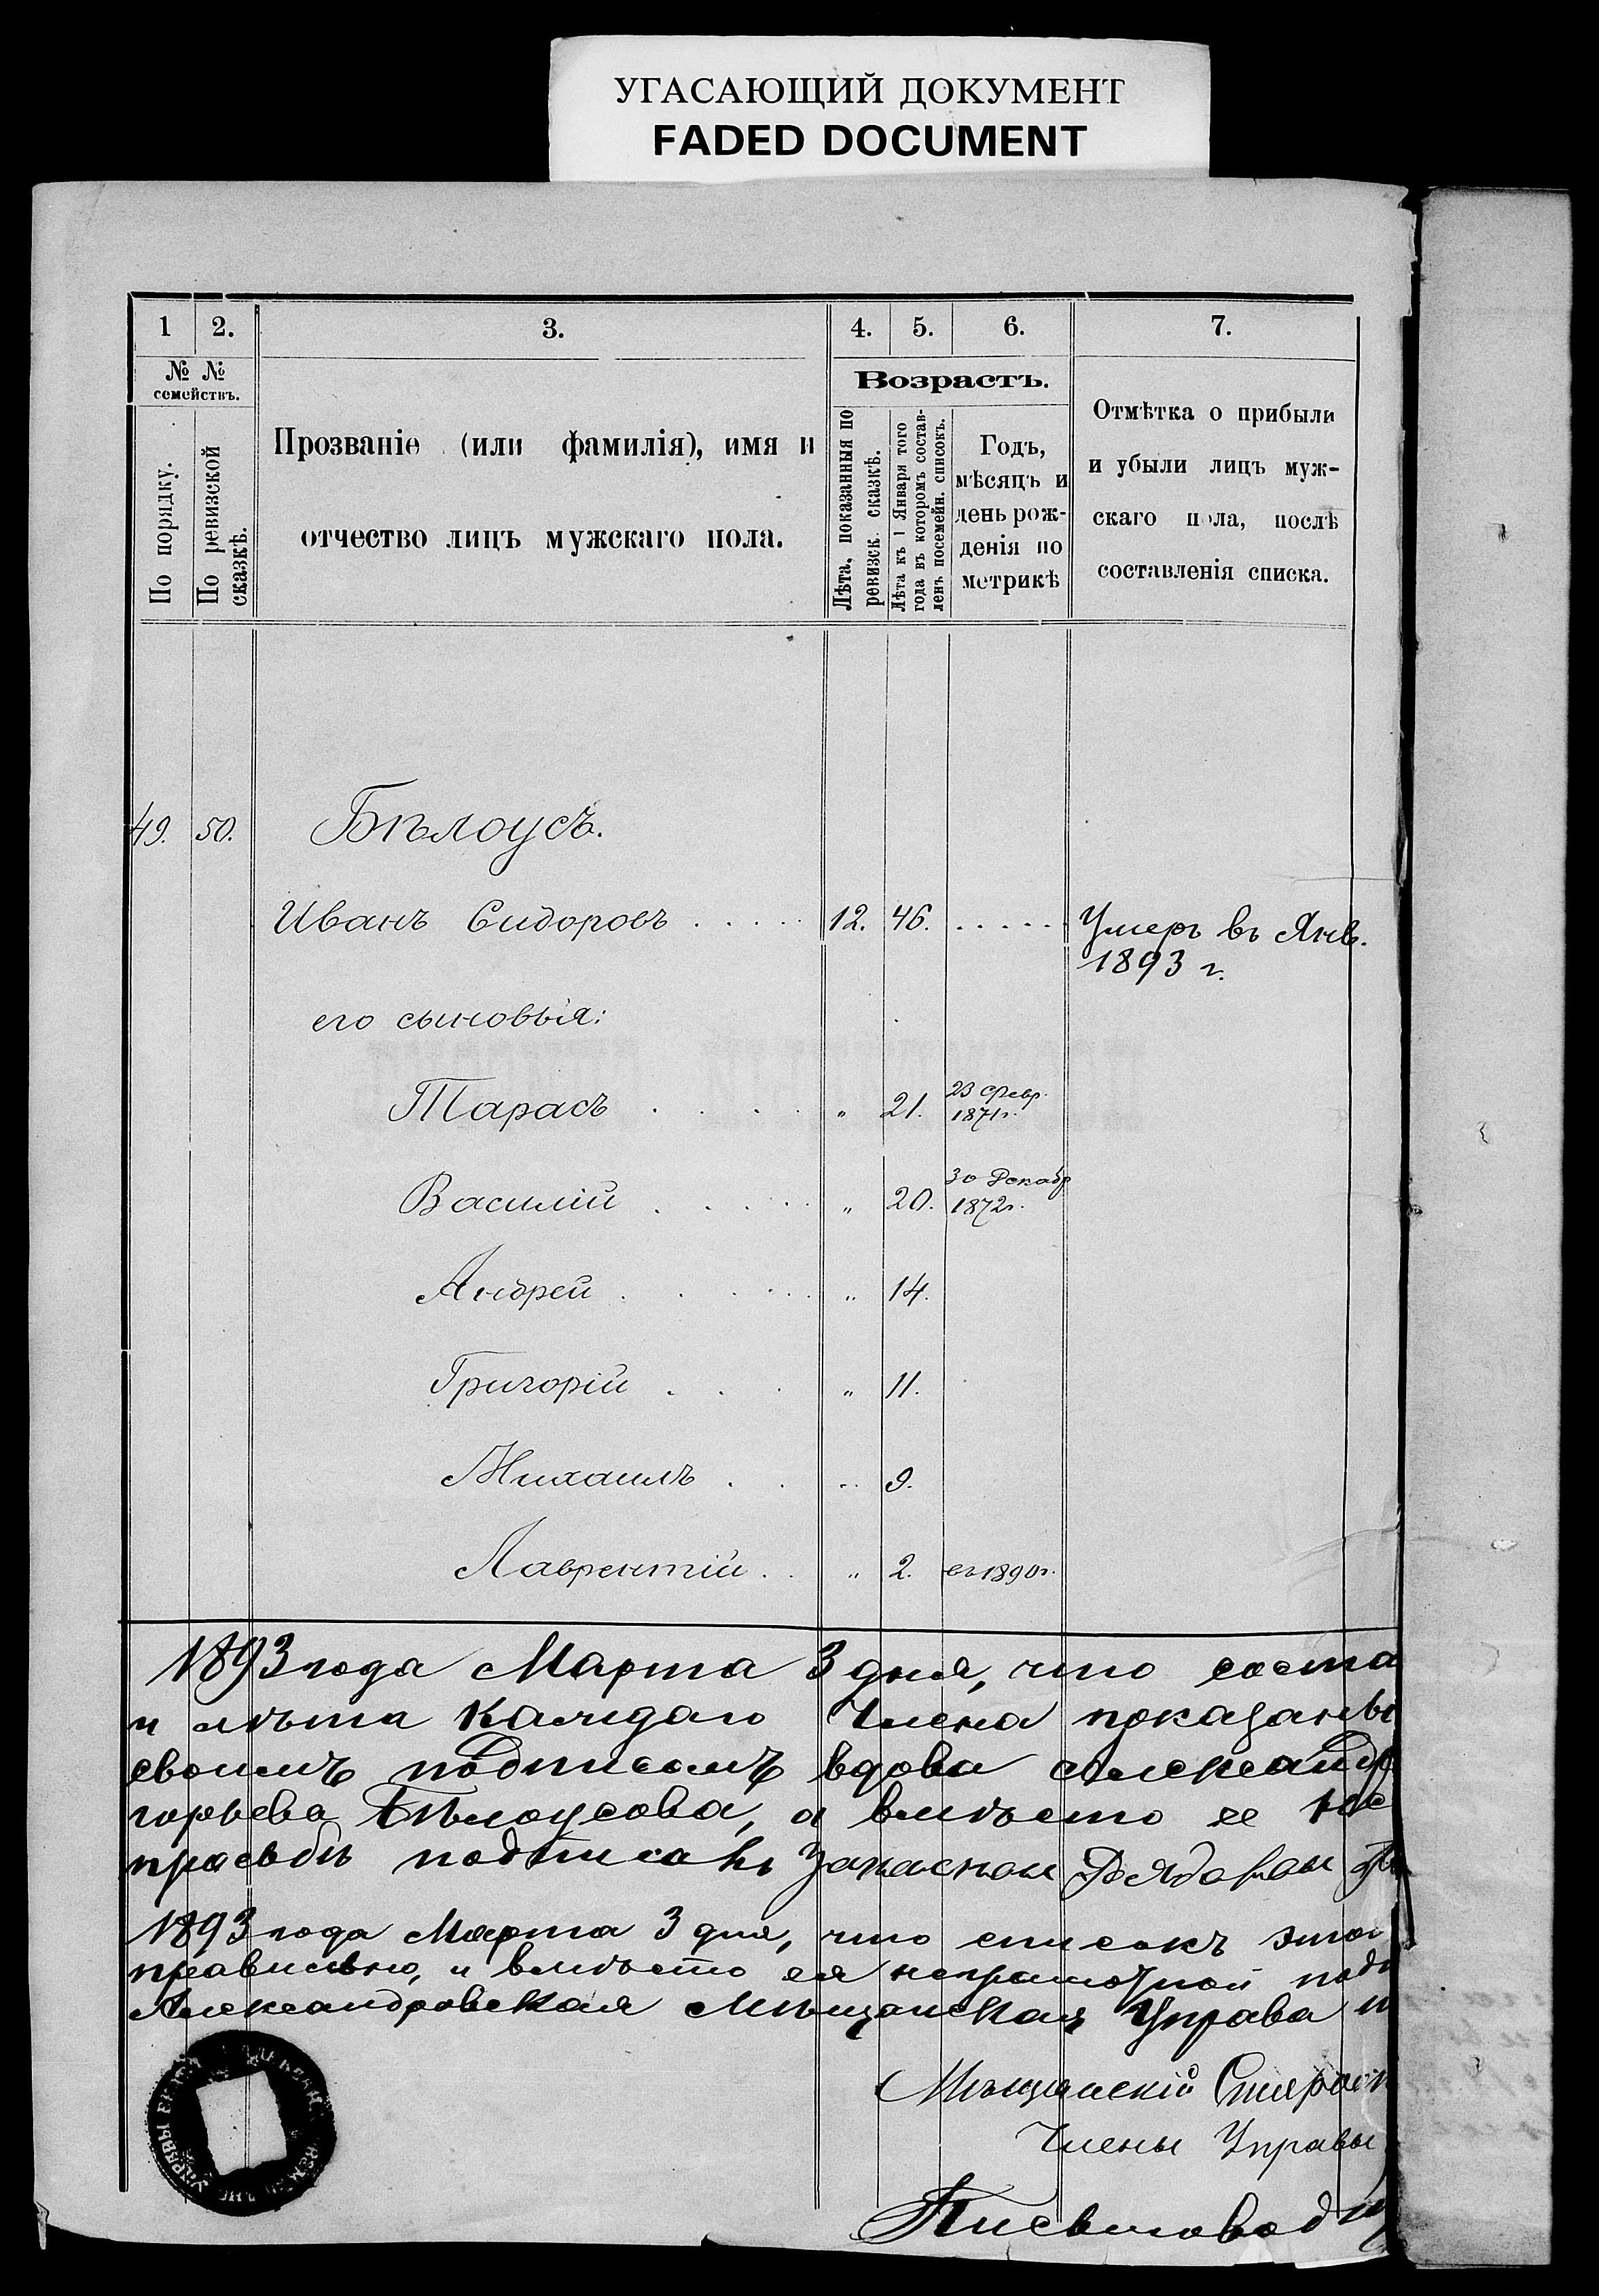 УГАСАЮЩИЙ ДОКУМЕНТ
FADED DOCUMENT
1 2. 3. 4. 5. 6. 7.
№ №
семействъ.
По порядку.
По ревизской
сказкѣ.
Прозваніе (или фамилія), имя и
отчество лицъ мужскаго пола.
Возрастъ.
Лѣта, показанныя по
ревизск. сказкѣ.
Лѣта къ 1 Января того
года въ которомъ состав-
ленъ посемейн. списокъ.
Годъ,
мѣсяцъ и
день рож-
денія по
метрикѣ
Отмѣтка о прибыли
и убыли лицъ муж-
скаго пола, послѣ
составленія списка.
49. 50. Бѣлоусъ.
Иванъ Сидоровъ . . . . . 12. 46. . . . . . Умеръ въ Янв.
1893 г.
его сыновья:
Тарасъ . . . . „ 21. 23 Февр.
1871г.
Василій . . . . . „ 20. 30 Декабр
1872г.
Андрей . . . . . „ 14.
Григорій . . . „ 11.
Михаилъ . . „ 9.
Лаврентій . . „ 2. въ 1890г.
1893 года Марта 3 дня, что соста
и лѣта каждаго Члена показаны
своимъ подписомъ вдова Александ
горьева Бѣлоусова, а вмѣсто ее
прозьбѣ подписалъ Запасной Рядовой
1893 года Марта 3 дня, что списокъ этот
правильно, и вмѣсто ея неграмотной подп
Александровская Мѣщанская Управа и
Мѣщанскій Старост
Члены Управы
Письмовод
УПРАВЫ